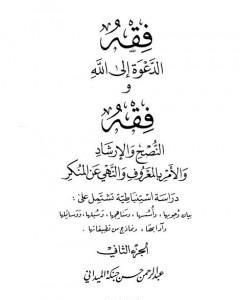 فِقْهُ
الدَّعْوَةِ إِلَى اللَّهِ
وَ
فِقْهُ
النُّصْحِ وَالإِرْشَادِ
وَالأَمْرِ بِالمَعْرُوفِ وَالنَّهْيِ عَنِ المُنْكَرِ
دِرَاسَة اسْتِنبَاطِيَّة تَشْتَمِل عَلَى :
بيان وجوبها، وأسسها، ومناهجها، وسبلها، ووسائلها
وآدابها، ونماذج من تطبيقاتها .
الجزء الثاني
عبد الرحمن حسن حبنكة الميداني